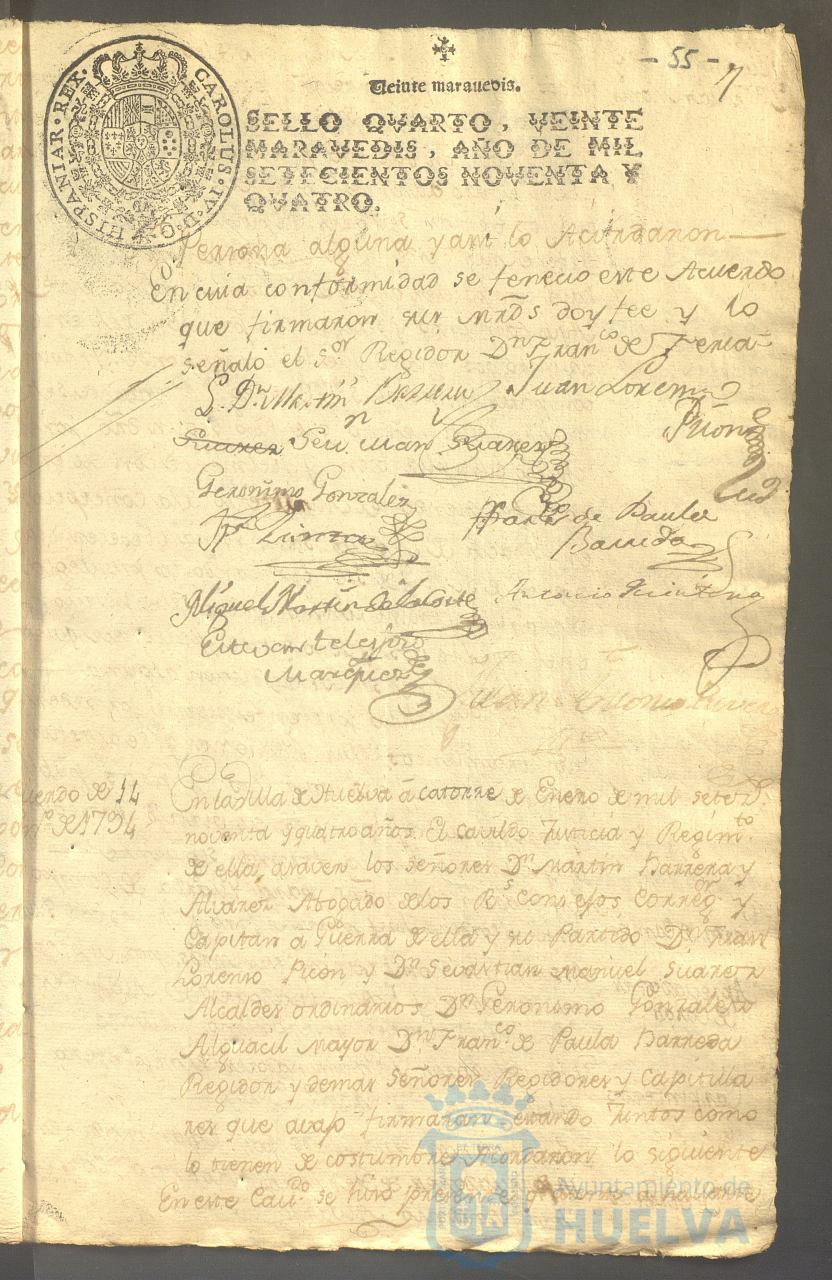 - 55 -
Veinte maravedis.
CAROLUS · IV · D · G · HISPANIAR · REX ·
SELLO QVARTO, VEINTE
MARAVEDIS, AÑO DE MIL
SETECIENTOS NOVENTA Y
QVATRO.
Persona alguna y asi lo Acordaron
En cuia conformidad se fenecio este Acuerdo
que firmaron sus mrds doy fee y lo
señaló el Sor Regidor Dn Franco de Feria
L. Dn Martin Barrera Juan Lorenzo
Picon
Suarez Sevn Man Suarez
Geronimo Gonzalez
Franco de Paula
Barreda
Miguel Martin de la Corte Antonio Quintero
Estevan telesforo
Marquez
Acuerdo de 14
de 1794
En la Villa de Huelva á catorze de Enero de mil setezs
noventa y quatro años. El Cavildo Justicia y Regimto
de ella, asaver los señores Dn Martin Barrera y
Alvarez Abogado de los Rs Consejos Corregor y
Capitan á Guerra de ella y su Partido Dn Juan
Lorenzo Picon y Dn Sevastian Manuel Suarez
Alcaldes ordinarios Dn Geronimo Gonzalez
Alguacil mayor Dn Franco de Paula Barreda
Regidor y demas Señores Regidores y Capitula
res que avajo firmaran estando Juntos como
lo tienen de costumbre Acordaron lo siguiente
En este Cavdo se tuvo presente
Ayuntamiento de
HUELVA